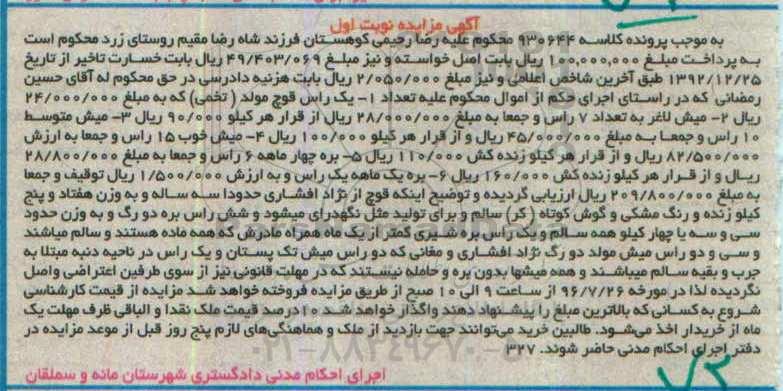 آگهی مزایده نوبت اول
به موجب پرونده کلاسه ۹۳۰۶۴۴ محکوم علیه رضا رحیمی کوهستان فرزند شاه رضا مقیم روستای زرد محکوم است
به پرداخت مبلغ ۱۰۰,۰۰۰,۰۰۰ ریال بابت اصل خواسته و نیز مبلغ ۴۹/۴۰۳/۰۶۹ ریال بابت خسارت تاخیر از تاریخ
۱۳۹۲/۱۲/۲۵ طبق آخرین شاخص اعلامی و نیز مبلغ ۲/۰۵۰/۰۰۰ ریال بابت هزینه دادرسی در حق محکوم له آقای حسین
رمضانی که در راستای اجرای حکم از اموال محکوم علیه تعداد ۱- یک راس قوچ مولد ( تخمی) که به مبلغ ۲۴/۰۰۰/۰۰۰
ریال ۲- میش لاغر به تعداد ۷ راس و جمعا به مبلغ ۲۸/۰۰۰/۰۰۰ ریال از قرار هر کیلو ۹۰/۰۰۰ ریال ۳- میش متوسط
۱۰ راس و جمعا به مبلغ ۴۵/۰۰۰/۰۰۰ ریال و از قرار هر کیلو ۱۰۰/۰۰۰ ریال ۴- میش خوب ۱۵ راس و جمعا به ارزش
۸۲/۵۰۰/۰۰۰ ریال و از قرار هر کیلو زنده کش ۱۱۰/۰۰۰ ریال ۵- بره چهار ماهه ۶ راس و جمعا به مبلغ ۲۸/۸۰۰/۰۰۰
ریال و از قرار هر کیلو زنده کش ۱۶۰/۰۰۰ ریال ۶- بره یک ماهه یک راس و به ارزش ۱/۵۰۰/۰۰۰ ریال توقیف و جمعا
به مبلغ ۲۰۹/۸۰۰/۰۰۰ ریال ارزیابی گردیده و توضیح اینکه قوچ از نژاد افشاری حدودا سه ساله و به وزن هفتاد و پنج
کیلو زنده و رنگ مشکی و گوش کوتاه ( کر) سالم و برای تولید مثل نگهدرای میشود و شش راس بره دو رگ و به وزن حدود
سی و سه یا چهار کیلو همه سالم و یک راس بره شیری کمتر از یک ماه همراه مادرش که همه ماده هستند و سالم میاشند
و سی و دو راس میش مولد دو رگ نژاد افشاری و مغانی که دو راس میش تک پستان و یک راس در ناحیه دنبه مبتلا به
جرب و بقیه سالم میباشند و همه میشها بدون بره و حامله نیستند که در مهلت قانونی نیز از سوی طرفین اعتراضی واصل
نگردیده لذا در مورخه ۹۶/۷/۲۶ از ساعت ۹ الی ۱۰ صبح از طریق مزایده فروخته خواهد شد مزایده از قیمت کارشناسی
شروع به کسانی که بالاترین مبلغ را پیشنهاد دهند واگذار خواهد شد ۱۰درصد قیمت ملک نقدا و الباقی ظرف مهلت یک
ماه از خریدار اخذ می‌شود. طالبین خرید می‌توانند جهت بازدید از ملک و هماهنگی‌های لازم پنج روز قبل از موعد مزایده در
دفتر اجرای احکام مدنی حاضر شوند. ۳۲۷
۰۲۱-۸۸۳۴۹۶۷۰
اجرای احکام مدنی دادگستری شهرستان مانه و سملقان